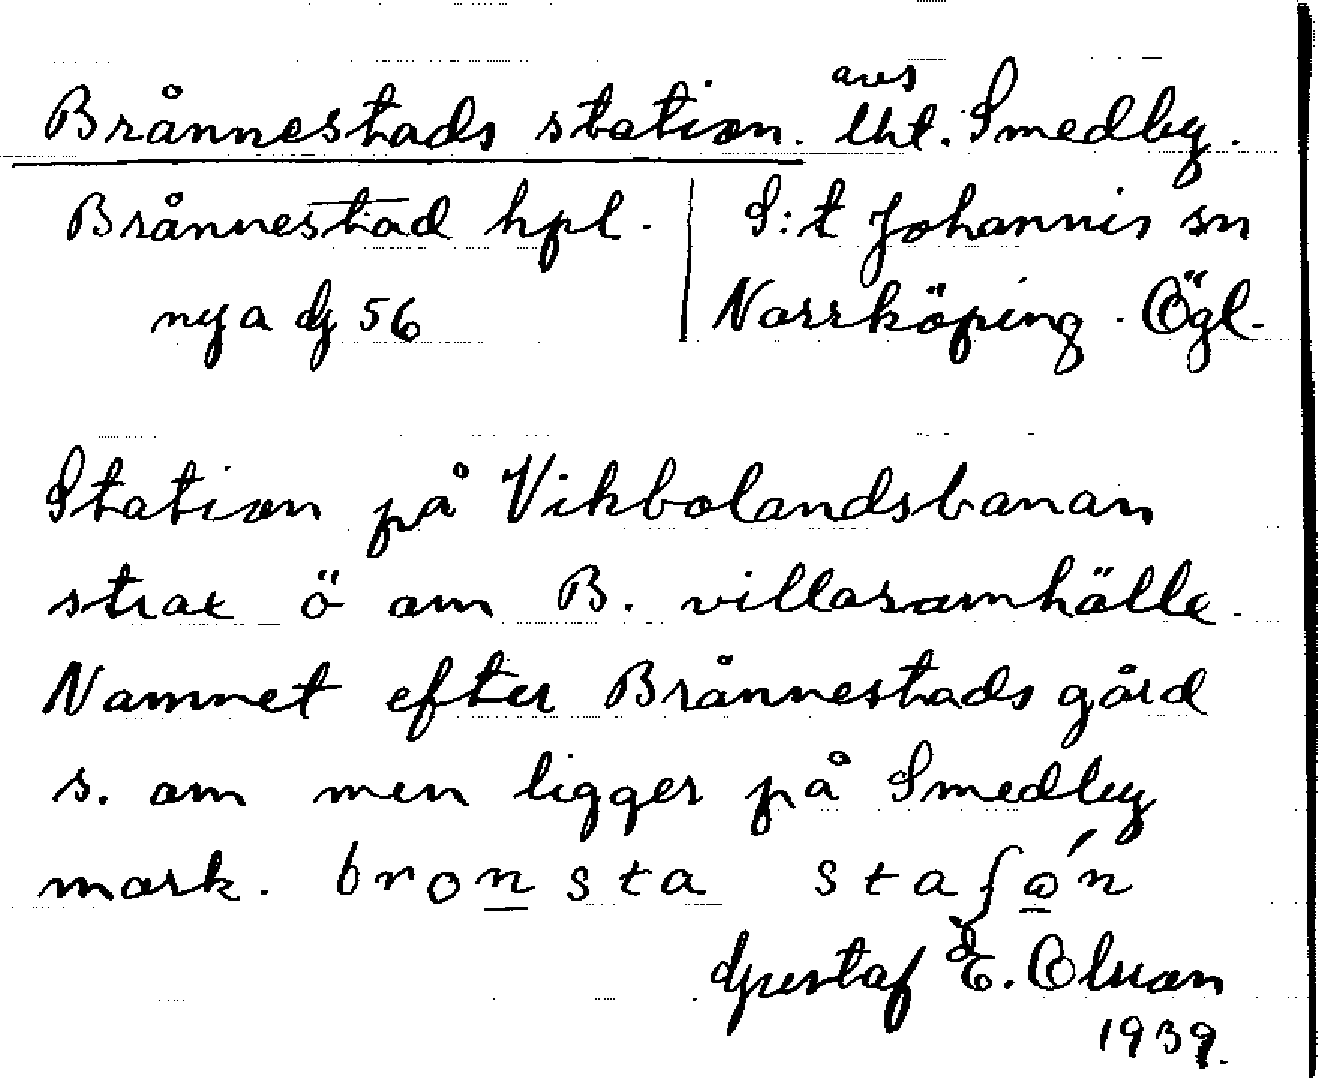 Brånnestads station. avs Uht. Smedby.
Brånnestad hpl. S:t Johannis sn
nya dj 56 Norrköping. Ögl.
Station på Vikbolandsbanan
strax ö om B. villasamhälle.
Namnet efter Brånnestads gård
s. om men ligger på Smedby
mark. bronsta staʃón
Gustaf E. Olson
1939.